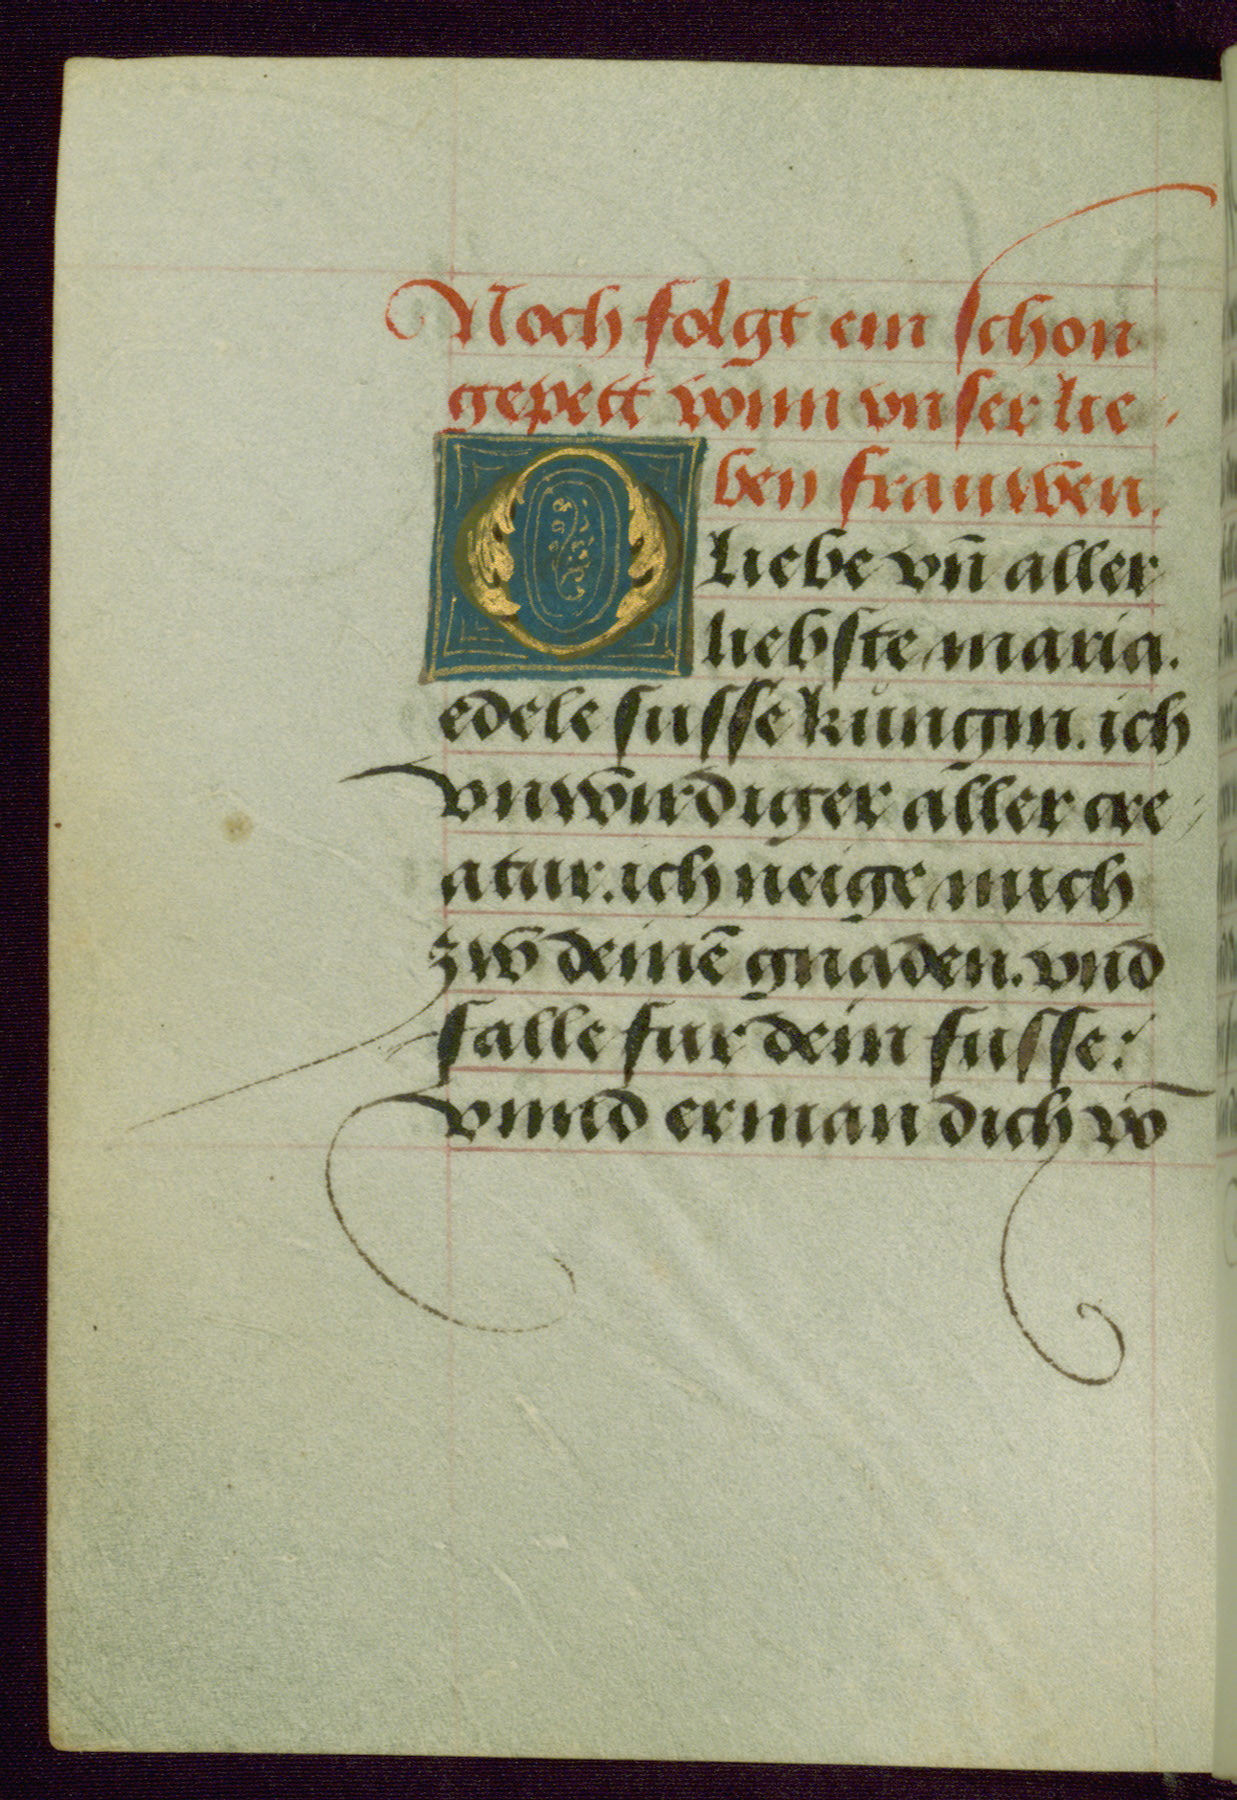 Noch folgt ein schon
gepett vonn vnser lie-
ben frauwen.
O liebe vn̄ aller
liebste maria.
edele susse kůngin. ich
vnwirdiger aller cre-
atur. ich neige mich
zw deinē gnaden. vnd
falle fur dein fusse:
vnnd erman dich vō